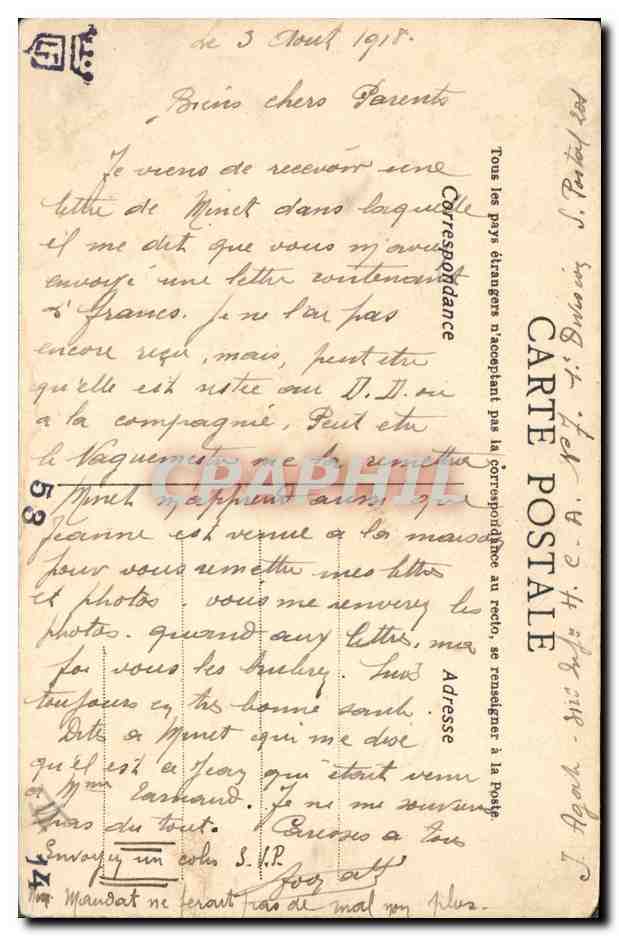 Le 3 Aout 1918.
Biens chers Parents
Je viens de recevoir une
lettre de Minet dans laquelle
il me dit que vous m'avez
envoyé une lettre contenant
5 francs. Je ne l'ai pas
encore reçu, mais, peut etre
qu'elle est restée au D.D. ou
a la compagnie. Peut etre
le Vaguemestre me la remettra
Minet m'apprend aussi que
Jeanne est venue a la maison
pour vous remettre mes lettres
et photos. vous me renverez les
photos. quand aux lettres, ma
foi vous les brulerez. Suis
toujours en très bonne santé.
Dites a Minet qui me dise
qu'el est ce Jean qui était venu
a Mme Earnaud. Je ne me souviens
pas du tout. Caresses a tous
Envoyez un colis S.V.P.
Mandat ne ferait pas de mal non plus.
CARTE POSTALE
Tous les pays étrangers n'acceptant pas la correspondance au recto, se renseigner à la Poste.
Correspondance
Adresse
CPAPHIL
53
14